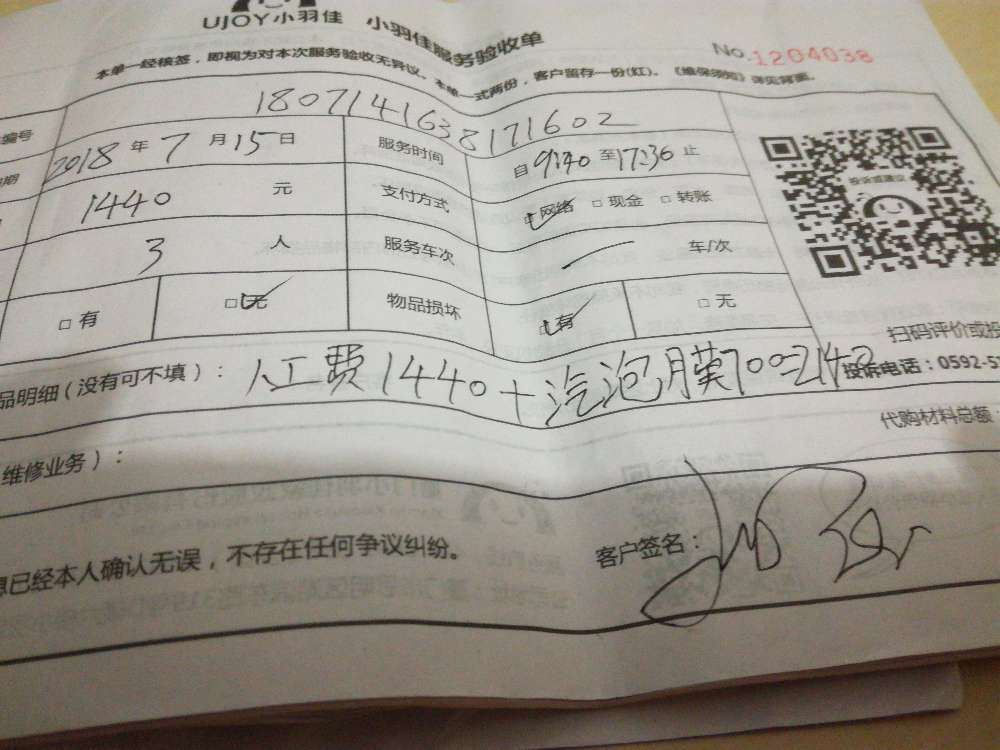 UJOY小羽佳 小羽佳服务验收单
No.1204038
本单一经核签，即视为对本次服务验收无异议。本单一式两份，客户留存一份(红)。《维保须知》详见背面。
编号 1807141638171602
期 2018年7月15日 服务时间 自9:40至17:36止
1440元 支付方式 □网络 □现金 □转账
3人 服务车次 车/次
□有 □无 物品损坏 □有 □无
投诉或建议
扫码评价或投
投诉电话：0592-5
品明细（没有可不填）： 人工费1440+汽泡膜700=2140
代购材料总额：
维修业务）：
已经本人确认无误，不存在任何争议纠纷。
客户签名：